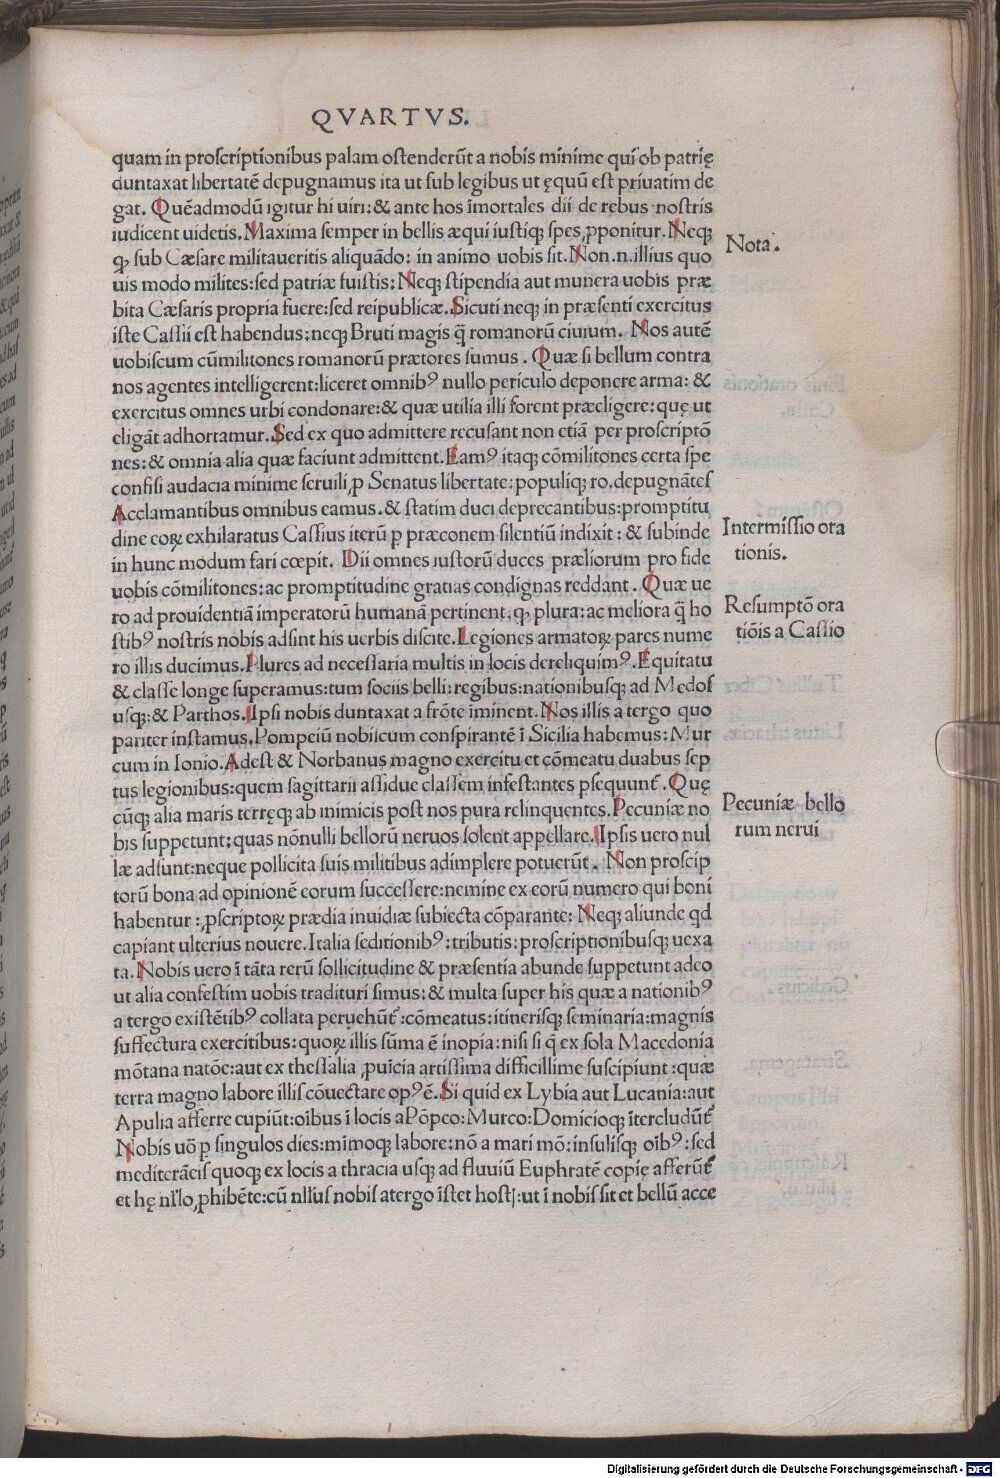 QVARTVS.
quam in proscriptionibus palam ostenderũt a nobis minime qui ob patrię
duntaxat libertatẽ depugnamus ita ut sub legibus ut ęquũ est priuatim de
gat. Quẽadmodũ igitur hi uiri: & ante hos ĩmortales dii de rebus nostris
iudicent uidetis. Maxima semper in bellis æqui iustiqꝫ spes ꝓponitur. Neqꝫ
Nota.
qꝫ sub Cæsare militaueritis aliquãdo: in animo uobis sit. Non .n. illius quo
uis modo milites: sed patriæ fuistis: Neqꝫ stipendia aut munera uobis præ
bita Cæsaris propria fuere: sed reipublicæ. Sicuti neqꝫ in præsenti exercitus
iste Cassii est habendus: neqꝫ Bruti magis q̃ romanorũ ciuium. Nos autẽ
uobiscum cũmilitones romanorũ prætores sumus. Quæ si bellum contra
nos agentes intelligerent: liceret omnibꝰ nullo periculo deponere arma: &
exercitus omnes urbi condonare: & quæ utilia illi forent præeligere: quę ut
eligãt adhortamur. Sed ex quo admittere recusant non etiã per proscriptõ
nes: & omnia alia quæ faciunt admittent. Eamꝰ itaqꝫ cõmilitones certa spe
confisi audacia minime seruili ꝓ Senatus libertate: populiqꝫ ro. depugnãtes
Acclamantibus omnibus eamus. & statim duci deprecantibus: promptitu
dine eoꝝ exhilaratus Cassius iterũ ꝑ præconem silentiũ indixit: & subinde
Intermissio ora
tionis.
in hunc modum fari cœpit. Dii omnes iustorũ duces præliorum pro fide
uobis cõmilitones: ac promptitudine gratias condignas reddant. Quæ ue
ro ad prouidentiã imperatorũ humanã pertinent. qꝫ plura: ac meliora q̃ ho
Resumptõ ora
tiõis a Cassio
stibꝰ nostris nobis adsint his uerbis discite. Legiones armatoꝝ pares nume
ro illis ducimus. Plures ad necessaria multis in locis dereliquimꝰ. Equitatu
& classe longe superamus: tum sociis belli: regibus: nationibusqꝫ ad Medos
usqꝫ: & Parthos. Ipsi nobis duntaxat a frõte iminent. Nos illis a tergo quo
pariter instamus. Pompeiũ nobiscum conspirantẽ ĩ Sicilia habemus: Mur
cum in Ionio. Adest & Norbanus magno exercitu et cõmeatu duabus sep
tus legionibus: quem sagittarii assidue classem infestantes ꝑsequunt̃. Quę
cũqꝫ alia maris terręqꝫ ab inimicis post nos pura relinquentes. Pecuniæ no
Pecuniæ bello
rum nerui
bis suppetunt: quas nõnulli bellorũ neruos solent appellare. Ipsis uero nul
læ adsunt: neque pollicita suis militibus adimplere potuerũt. Non proscip
torũ bona ad opinionẽ eorum successere: nemine ex eorũ numero qui boni
habentur: ꝓscriptoꝝ prædia inuidiæ subiecta cõparante: Neqꝫ aliunde qd
capiant ulterius nouere. Italia seditionibꝰ: tributis: proscriptionibusqꝫ uexa
ta. Nobis uero ĩ tãta rerũ sollicitudine & præsentia abunde suppetunt adeo
ut alia confestim uobis tradituri simus: & multa super his quæ a nationibꝰ
a tergo existẽtibꝰ collata peruehũt̃: cõmeatus: itinerisqꝫ seminaria: magnis
suffectura exercitibus: quoꝝ illis sũma ẽ inopia: nisi si q̃ ex sola Macedonia
mõtana natõe: aut ex thessalia ꝓuĩcia artissima difficillime suscipiunt: quæ
terra magno labore illis cõuectare opꝰ ẽ. Si quid ex Lybia aut Lucania: aut
Apulia afferre cupiũt: oĩbus ĩ locis a Põpeo: Murco: Domicioqꝫ ĩtercludũt̃
Nobis uõ ꝑ singulos dies: mĩmoqꝫ labore: nõ a mari mõ: insulisqꝫ oĩbꝰ: sed
mediterãeis quoqꝫ ex locis a thracia usqꝫ ad fluuiũ Euphratẽ copię afferũt̃
et hę nl̃lo ꝓhibẽte: cũ nl̃lus nobis atergo ĩstet hostꝭ: ut ĩ nobis sit et bellũ acce
Digitalisierung gefördert durch die Deutsche Forschungsgemeinschaft - DFG